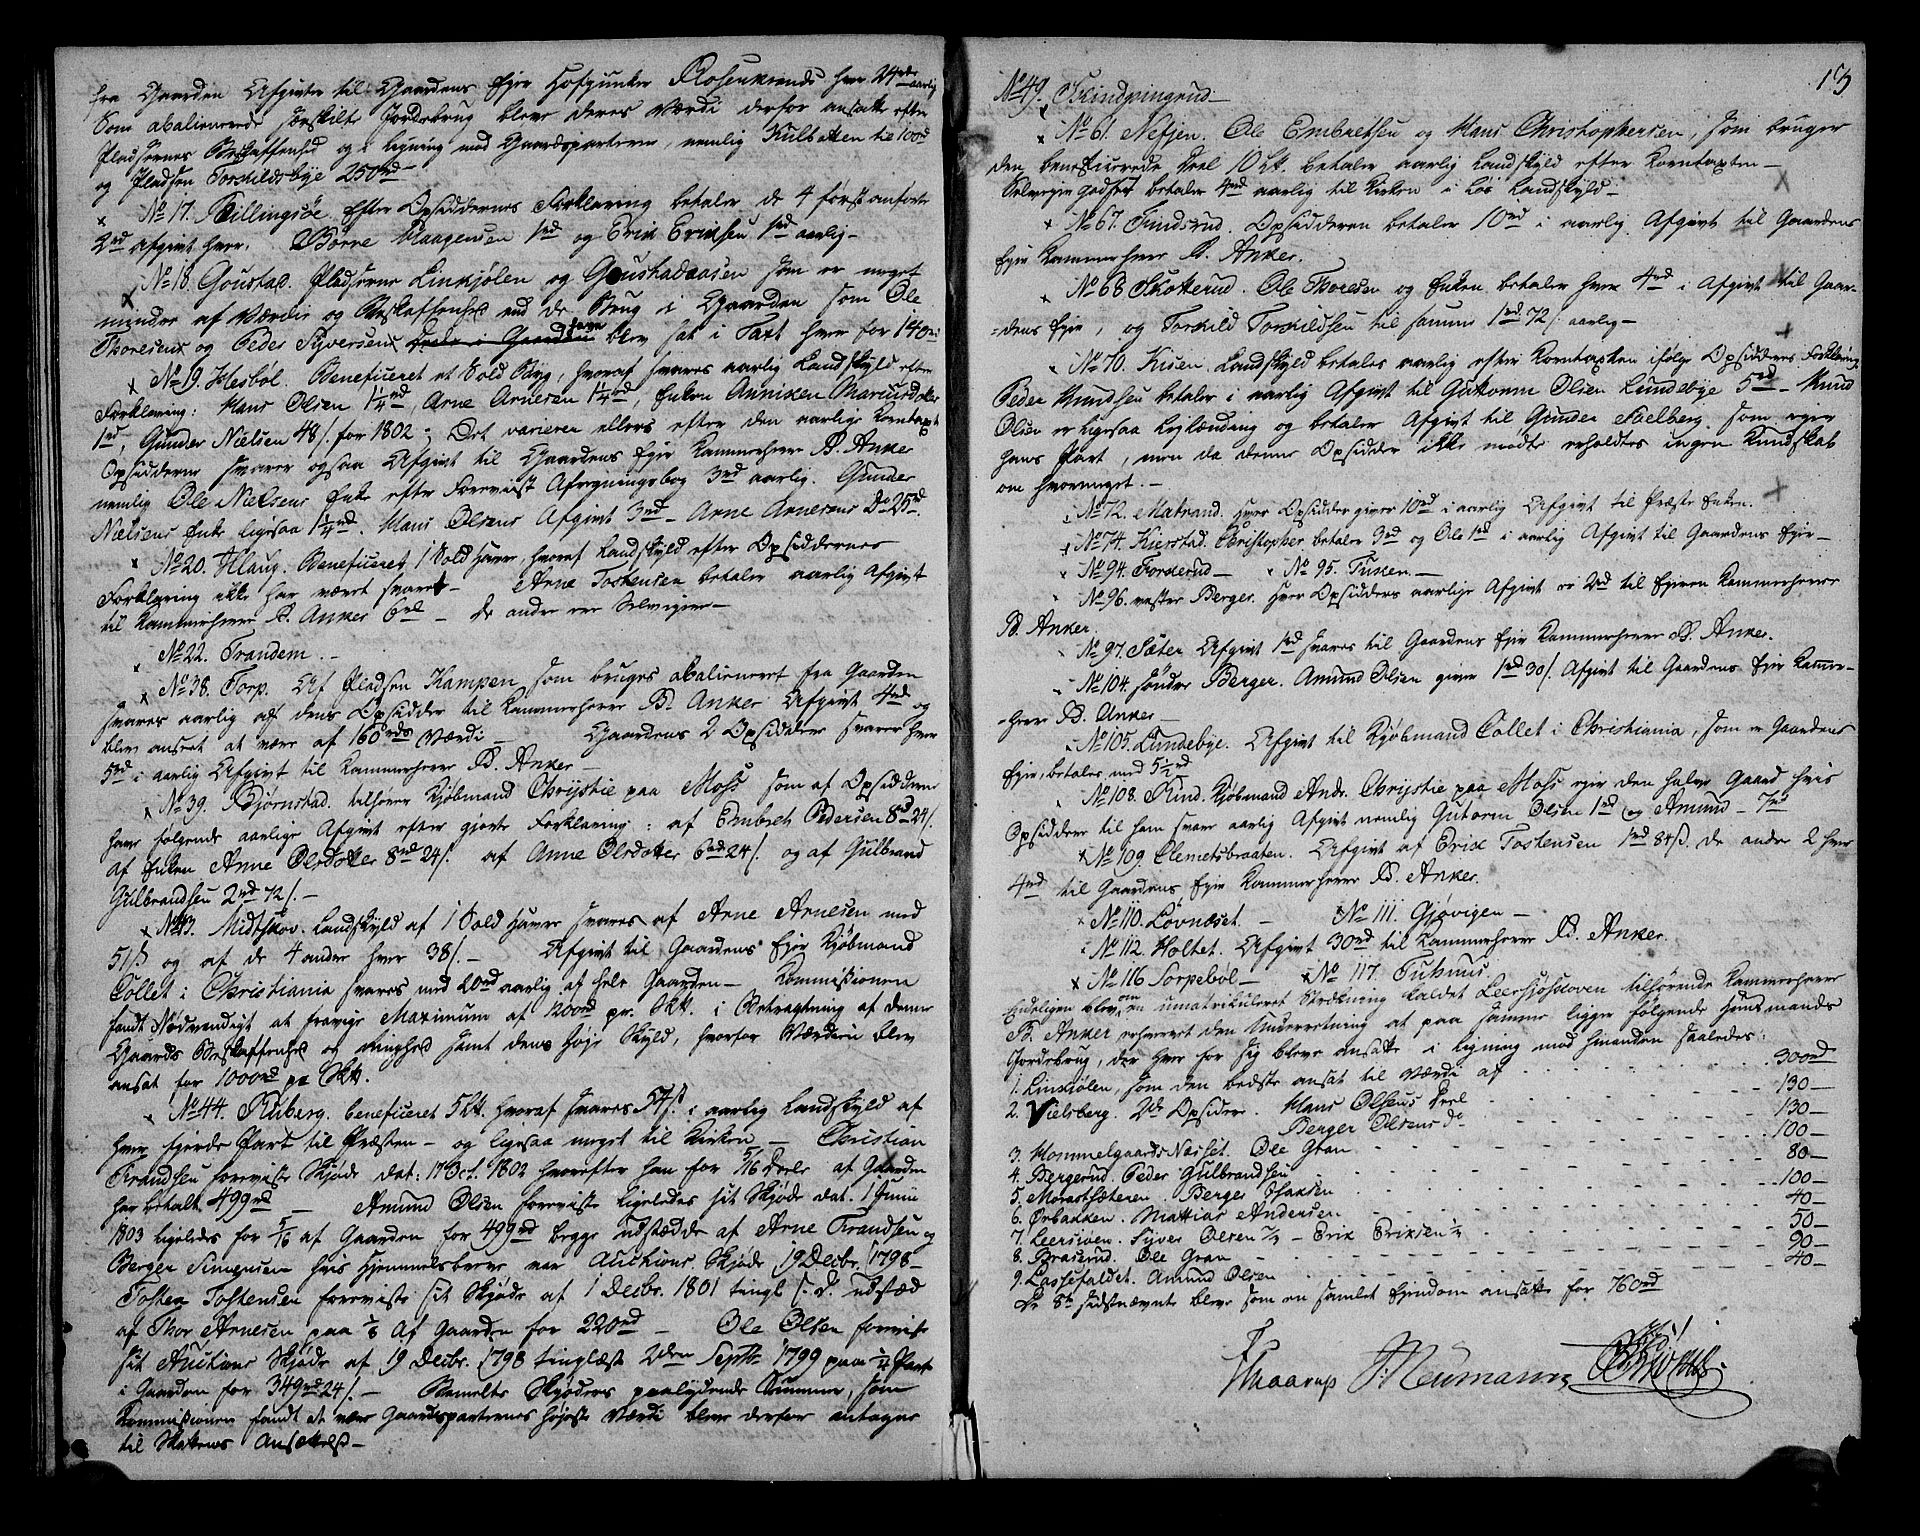 fra Gaarden Afgivter til Gaardens Ejer Hofjunker Rosenkrands hver 24rdr aarlig
Som abalienerede særskilte Jordebrug blev deres Værdi derfor ansatte efter
Pladsernes Beskaffenhed og i Ligning med Gaardsparterne, nemlig Kulbækken til 100rd
og Pladsen Torskildsbye 250rd
x No 17. Killingsøe. Efter Opsiddernes Forklaring betaler de 4 først anførte
2rd Afgivt hver. Børre Haagensen 1rd og Erik Eriksen 1rd aarlig—
x No 18. Goustad. Pladserne Linkjølen og Goustadaasen som er meget
mindre af Værdie og Beskaffenhed end de Brug i Gaarden som Ole
Thoresens og Peder Syversens have blev sat i Taxt hver for 140rd
x No 19. Hesbøl. Beneficeret et Sold Byg, hvoraf svares aarlig Landskyld efter
Forklaring: Hans Olsen 1¼rd, Arne Arnesen 1¼rd, Enken Anniken Mariusdatter
1rd Gunder Nielsen 48/ for 1802; Det varierer ellers efter den aarlige Korntaxt
Opsidderne svarer ogsaa Afgivt til Gaardens Ejer Kammerherre B. Anker
nemlig Ole Nielsens Enke efter Foreviist Afregningsbog 3rd aarlig. Gunder
Nielsens Enke ligesaa 1¼rd. Hans Olsens Afgivt 3rd— Arne Arnesens Do 25rd—
x No 20. Houg. Beneficeret 1 Sold Havre hvoraf Landskyld efter Opsiddernes
Forklaring ikke har været svaret— Arne Torstensen betaler aarlig Afgivt
til Kammerherre B. Anker 6rd— De andre ere Selveiere—
x No 22. Trandem.—
x No 38. Torp. Af Pladsen Kampen, som bruges abalieneret fra Gaarden
svares aarlig af dens Opsidder til Kammerherre B. Anker Afgivt 4rd og
blev anseet at være af 160rds Værdi— Gaardens 2 Opsiddere svarer hver
5rd i aarlig Afgivt til Kammerherre B. Anker—
x No 39. Bjørnstad. tilhører Kjøbmand Chrystie paa Moss som af Opsidderne
har følgende aarlige Afgivt efter gjorte Forklaring: af Embret Pedersen 8rd 24/.
af Enken Anne Olsdatter 8rd 24/. af Anne Olsdotter 6rd 24/. og af Gulbrand
Gulbrandsen 2rd 72/.—
x No 43. Midtskov. Landskyld af 1 Sold Havre svares af Arne Arnesen med
51/ß og af de 4 andre hver 38/.— Afgivt til Gaardens Ejer Kjøbmand
Collet i Christiania svares med 20rd aarlig af hele Gaarden— Kommissionen
fandt Nødvendigt at fravige Maximum af 1200rd pr. Skk. i Betragtning af denne
Gaards Beskaffenhed og Ringhed samt dens høje Skyld, hvorfor Værdien blev
ansat for 1000rd pr Skk.
x No 44. Riiberg. beneficeret 5 Lk. hvoraf svares 54/ß i aarlig Landskyld af
hver fjerde Part til Præsten— og ligesaa meget til Kirken— Christian
Trandsen foreviste Skjøde dat: 17 Oct. 1802 hvorefter han for 5/16 Deele af Gaarden
har betalt 499rd— Amund Olsen foreviste ligeledes sit Skjøde dat. 1 Junii
1803 ligeledes for 5/16 af Gaarden for 499rd begge udstædde af Arne Trandsen og
Berger Simensen hvis Hjemmelsbreve var Auctions Skjøde 19 Decbr. 1798—
Tosten Tostensen foreviste sit Skjøde af 1 Decbr. 1801 tingl. s. D. udstæd
af Thor Arnesen paa ⅛ af Gaarden for 220rd— Ole Olsen foreviste
sit Auctions Skjøde af 19 Decbr. 1798 tinglæst 2den Septbr 1799 paa ¼ Part
i Gaarden for 349rd 24/.— Bemelte Skjøders paalydende Summe, som
Kommissionen fandt at være Gaardsparternes højeste Værdi blev derfor antaget
til Skattens Ansættelse—
13
No 49. Skindpungrud—
x No 61. Nefjen. Ole Embretsen og Hans Christophersen, som bruger
den beneficerede Deel 10 Lk. betaler aarlig Landskyld efter Korntaxten—
Selveier Godset betaler 4rd aarlig til Kirken i løs Landskyld—
x No 67. Findsrud. Opsidderen betaler 10rd i aarlig Afgivt til Gaardens
Ejer Kammerherre B. Anker.
x No 68 Skotterud. Ole Thoresen og Enken betaler hver 4rd i Afgivt til Gaar-
=dens Ejer, og Torskild Torskildsen til samme 1rd 72/. aarlig—
x No 70. Kisen. Landskyld betales aarlig efter Korntaxten ifølge Opsidders Forklaring.
Peder Knudsen betaler i aarlig Afgivt til Guttorm Olsen Lundebye 5rd— Knud
Olsen er ligesaa Leilænding og betaler Afgivt til Gunder Sælberg som ejer
hans Part, men da denne Opsidder ikke mødte erholdtes ingen Kundskab
om hvormeget.—
x No 72. Matrand. hver Opsidder giver 10rd i aarlig Afgivt til Præste Enken.
x No 74. Kierstad. Christopher betaler 3rd og Ole 1rd i aarlig Afgivt til Gaardens Ejer—
x No 94. Forkerud— x No 95. Tusken.—
x No 96. vester Berger. hver Opsidders aarlige Afgivt er 2rd til Ejeren Kammerherre
B. Anker.
x No 97. Sæter Afgivt 1rd svares til Gaardens Ejer Kammerherre B. Anker.
x No 104. søndre Berger. Amund Olsen giver 1rd 30/. Afgivt til Gaardens Ejer Kammer-
=herre B. Anker—
x No 105. Lundebye. Afgivt til Kjøbmand Collet i Christiania, som er Gaardens
Ejer, betales med 5½rd
x No 108. Rind. Kjøbmand Andr. Chrystie paa Moss ejer den halve Gaard hvis
Opsiddere til ham svare aarlig Afgivt nemlig Gutorm Olsen 1rd og Amund— 7rd
x No 109. Clemetsbraaten. Afgivt af Erik Tostensen 1rd 84/ß. de andre 2 hver
4rd til Gaardens Ejer Kammerherre B. Anker.
x No 110. Løvnæset.— x No 111. Gjøvigen—
x No 112. Holtet. Afgivt 30rd til Kammerherre B. Anker.
x No 116 Sorpebøl— x No 117. Tuhuus
Endeligen blev, om en umatriculeret Strækning kaldet Leersjøskoven tilhørende Kammerherre
B. Anker erhvervet den Underretning at paa samme ligger følgende Huusmands
Jordebrug, der hver for sig bleve ansatte i Ligning med hinanden saaledes:
1. Linkiølen, som den bedste ansat til Værdi af 300rd
2. Vielsberg. 2de Opsidder. Hans Olsens Deel 130—
Berger Olsens do 130—
3. Hommelgaards Næsset. Ole Gran 100—
4. Bergerud. Peder Gulbrandsen 80—
5. Morastsæteren. Berger Isaksen 100—
6. Ørbakken. Mattias Andersen 40—
7. Leersøen. Syver Olsen ½— Erik Eriksen ½ 50—
8. Braserud. Ole Gran 90—
9. Lassefaldet. Amund Olsen 40—
De 8te sidstnævnte bleve som en samlet Ejendom ansatte for 760rd
Thaarup Neumann